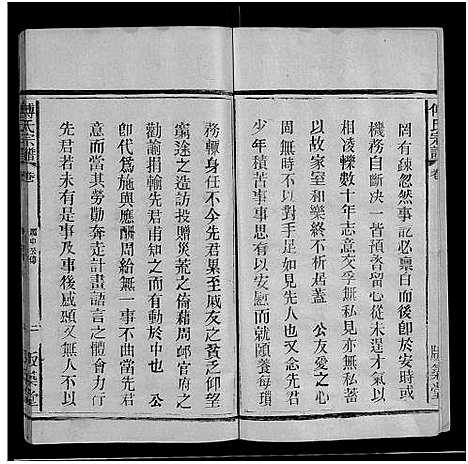 罔有疎忽然事記必禀白而後卽於安時或
機務自斷决一措畫未逞才氣以
相凌轢數十年志意交孚無私見亦無私蓄
以故家室和樂終不析居蓋 公友愛之心
周無時不以對手足如見先人也又念先君
少年積苦事事思有以安慰而就頤養每瑣
務輒身任不令先君累至戚友之貧乏仰望
窮途之造訪投贈災荒之倫藉周邺官府之
勸諭捐輸先君甫知之而事已於中也 公
卽代爲施與應酬周給無一事不曲當先君
意而當其勞勤奔走計畫語言之體會力行
先君若未有是事及事後感頭又無人不以
傅氏宗譜 卷
二
版築堂
傅氏宗譜 卷
版築堂